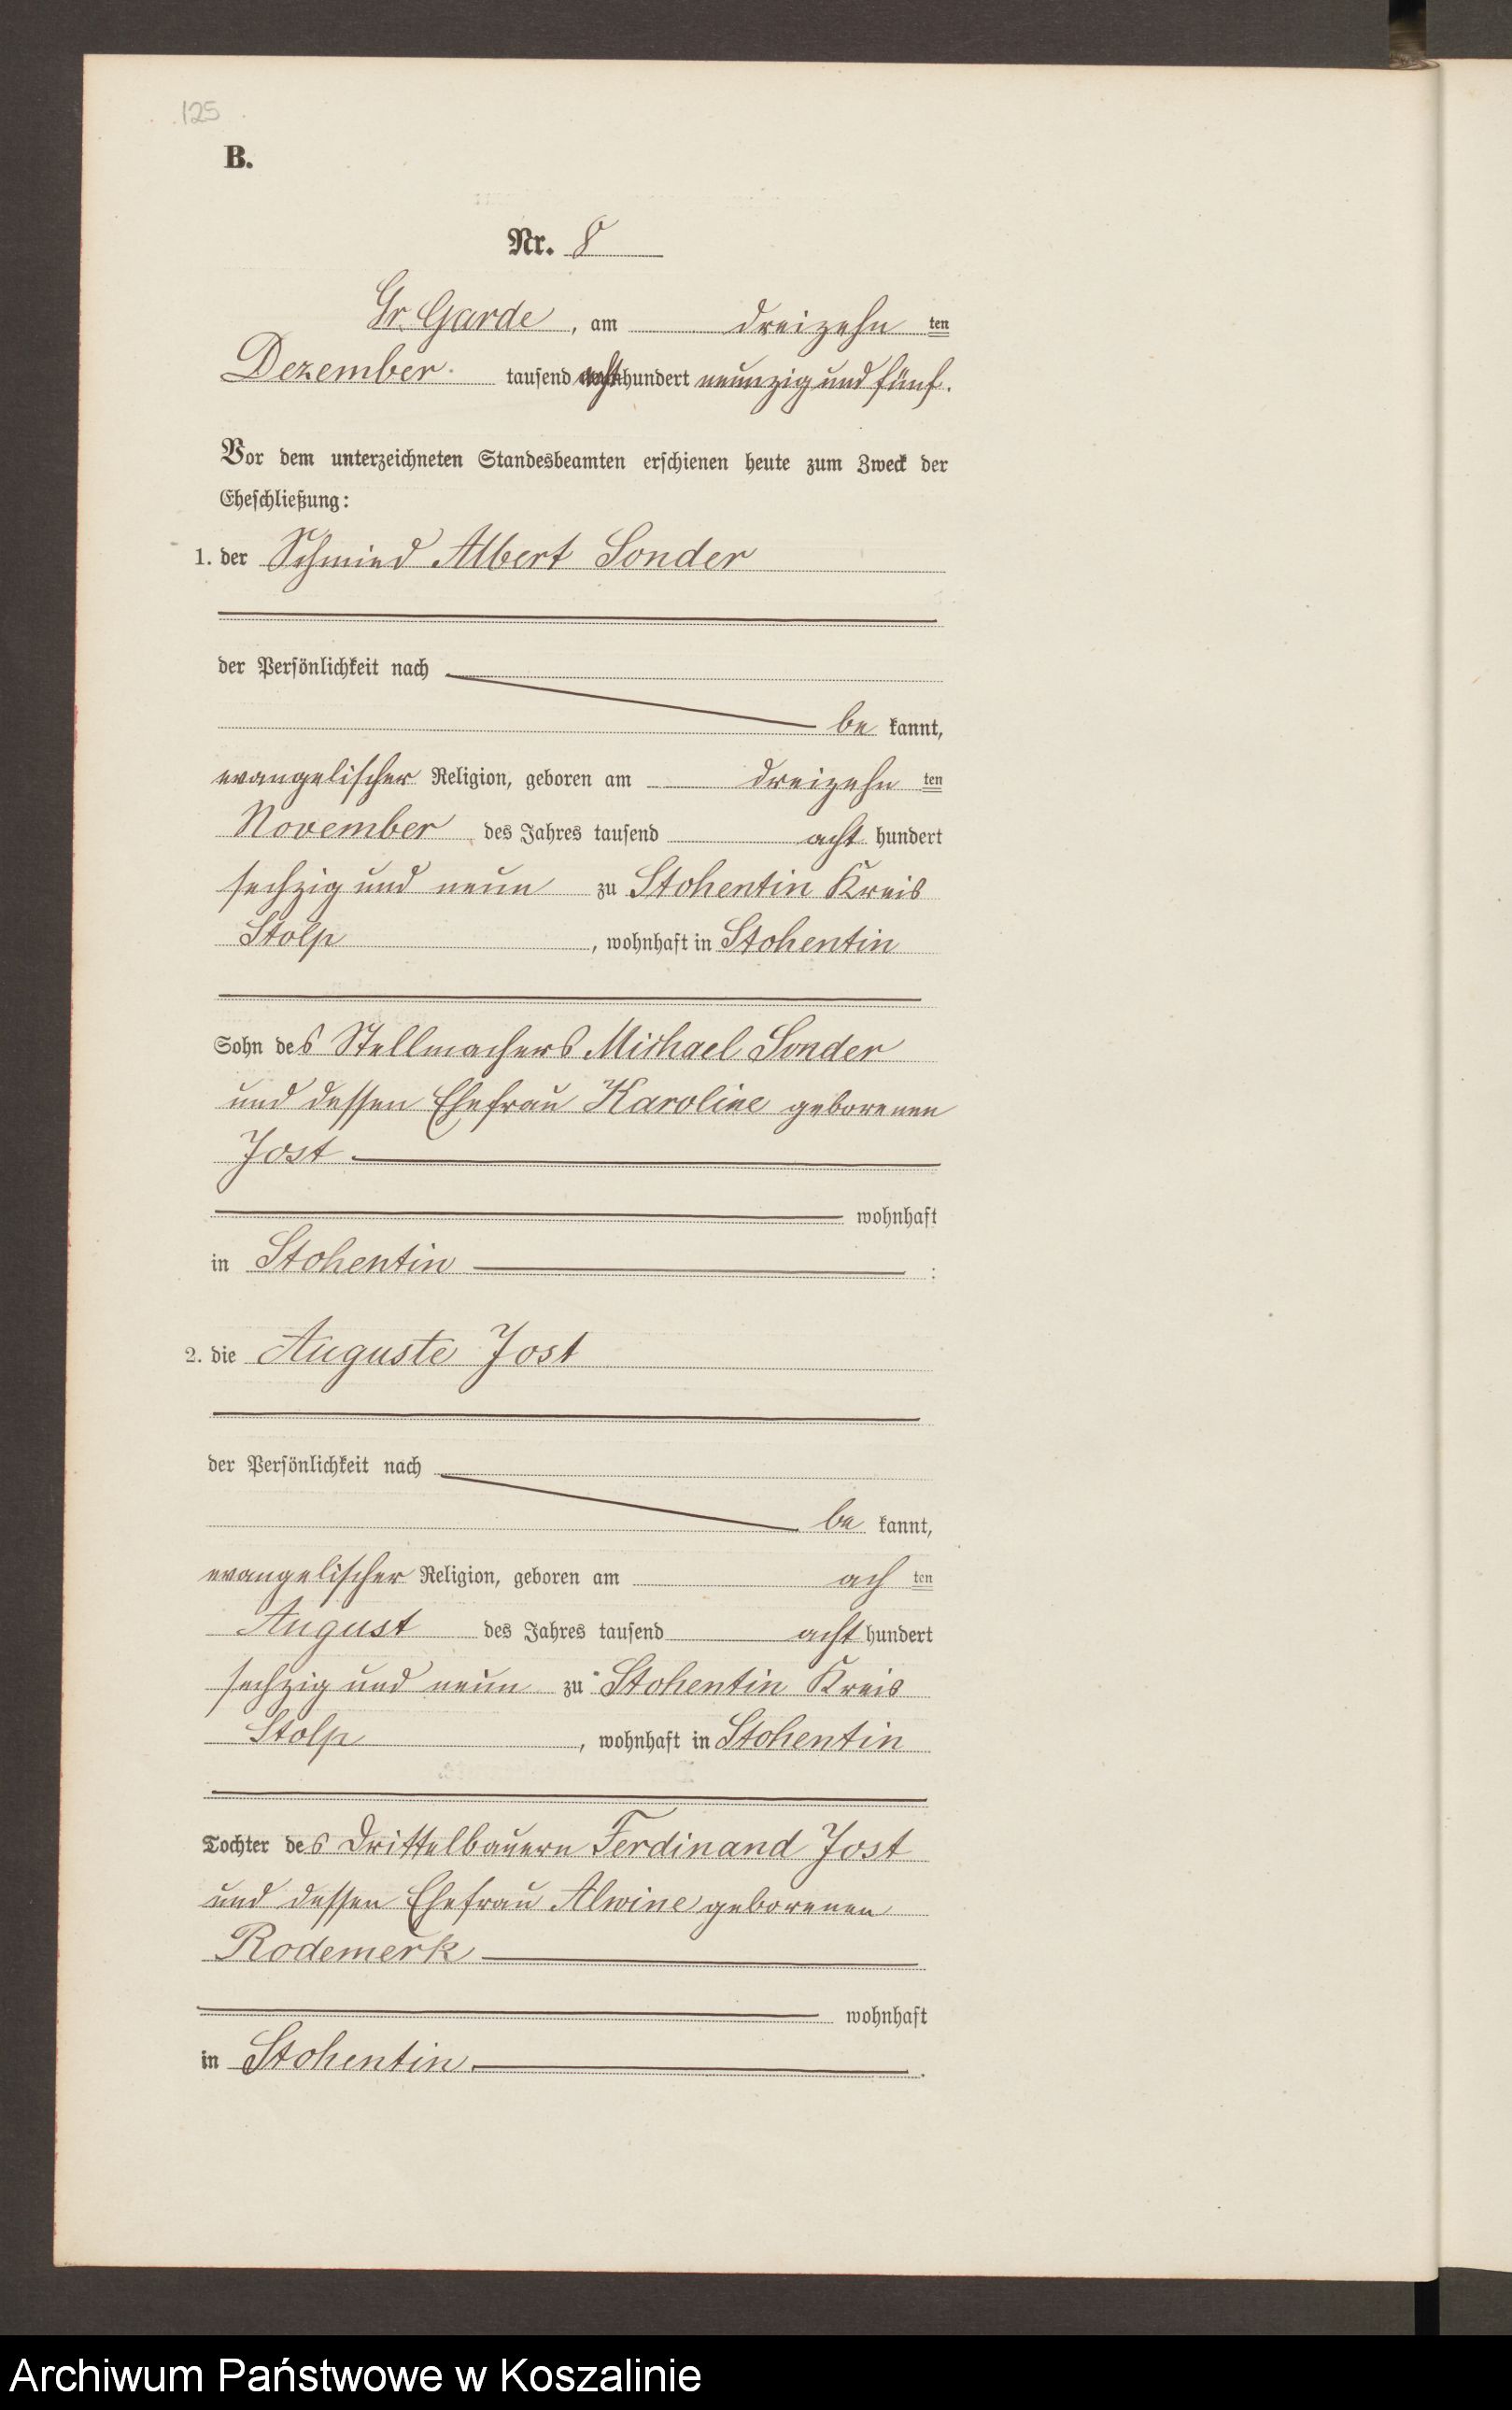 125
B.
Nr. 8
Gr. Garde, am dreizehn ten
Dezember tausend achthundert neunzig und fünf.
Vor dem unterzeichneten Standesbeamten erschienen heute zum Zweck der
Eheschließung:
1. der Schmied Albert Sonder
der Persönlichkeit nach
be kannt,
evangelischer Religion, geboren am dreizehn ten
November des Jahres tausend acht hundert
sechzig und neun zu Stohentin Kreis
Stolp, wohnhaft in Stohentin
Sohn des Stellmachers Michael Sonder
und dessen Ehefrau Karoline geborenen
Jost
wohnhaft
in Stohentin :
2. die Auguste Jost
der Persönlichkeit nach
be kannt,
evangelischer Religion, geboren am ach ten
August des Jahres tausend acht hundert
sechzig und neun zu Stohentin Kreis
Stolp, wohnhaft in Stohentin
Tochter des Drittelbauern Ferdinand Jost
und dessen Ehefrau Alwine geborenen
Rodemerk
wohnhaft
in Stohentin.
Archiwum Państwowe w Koszalinie